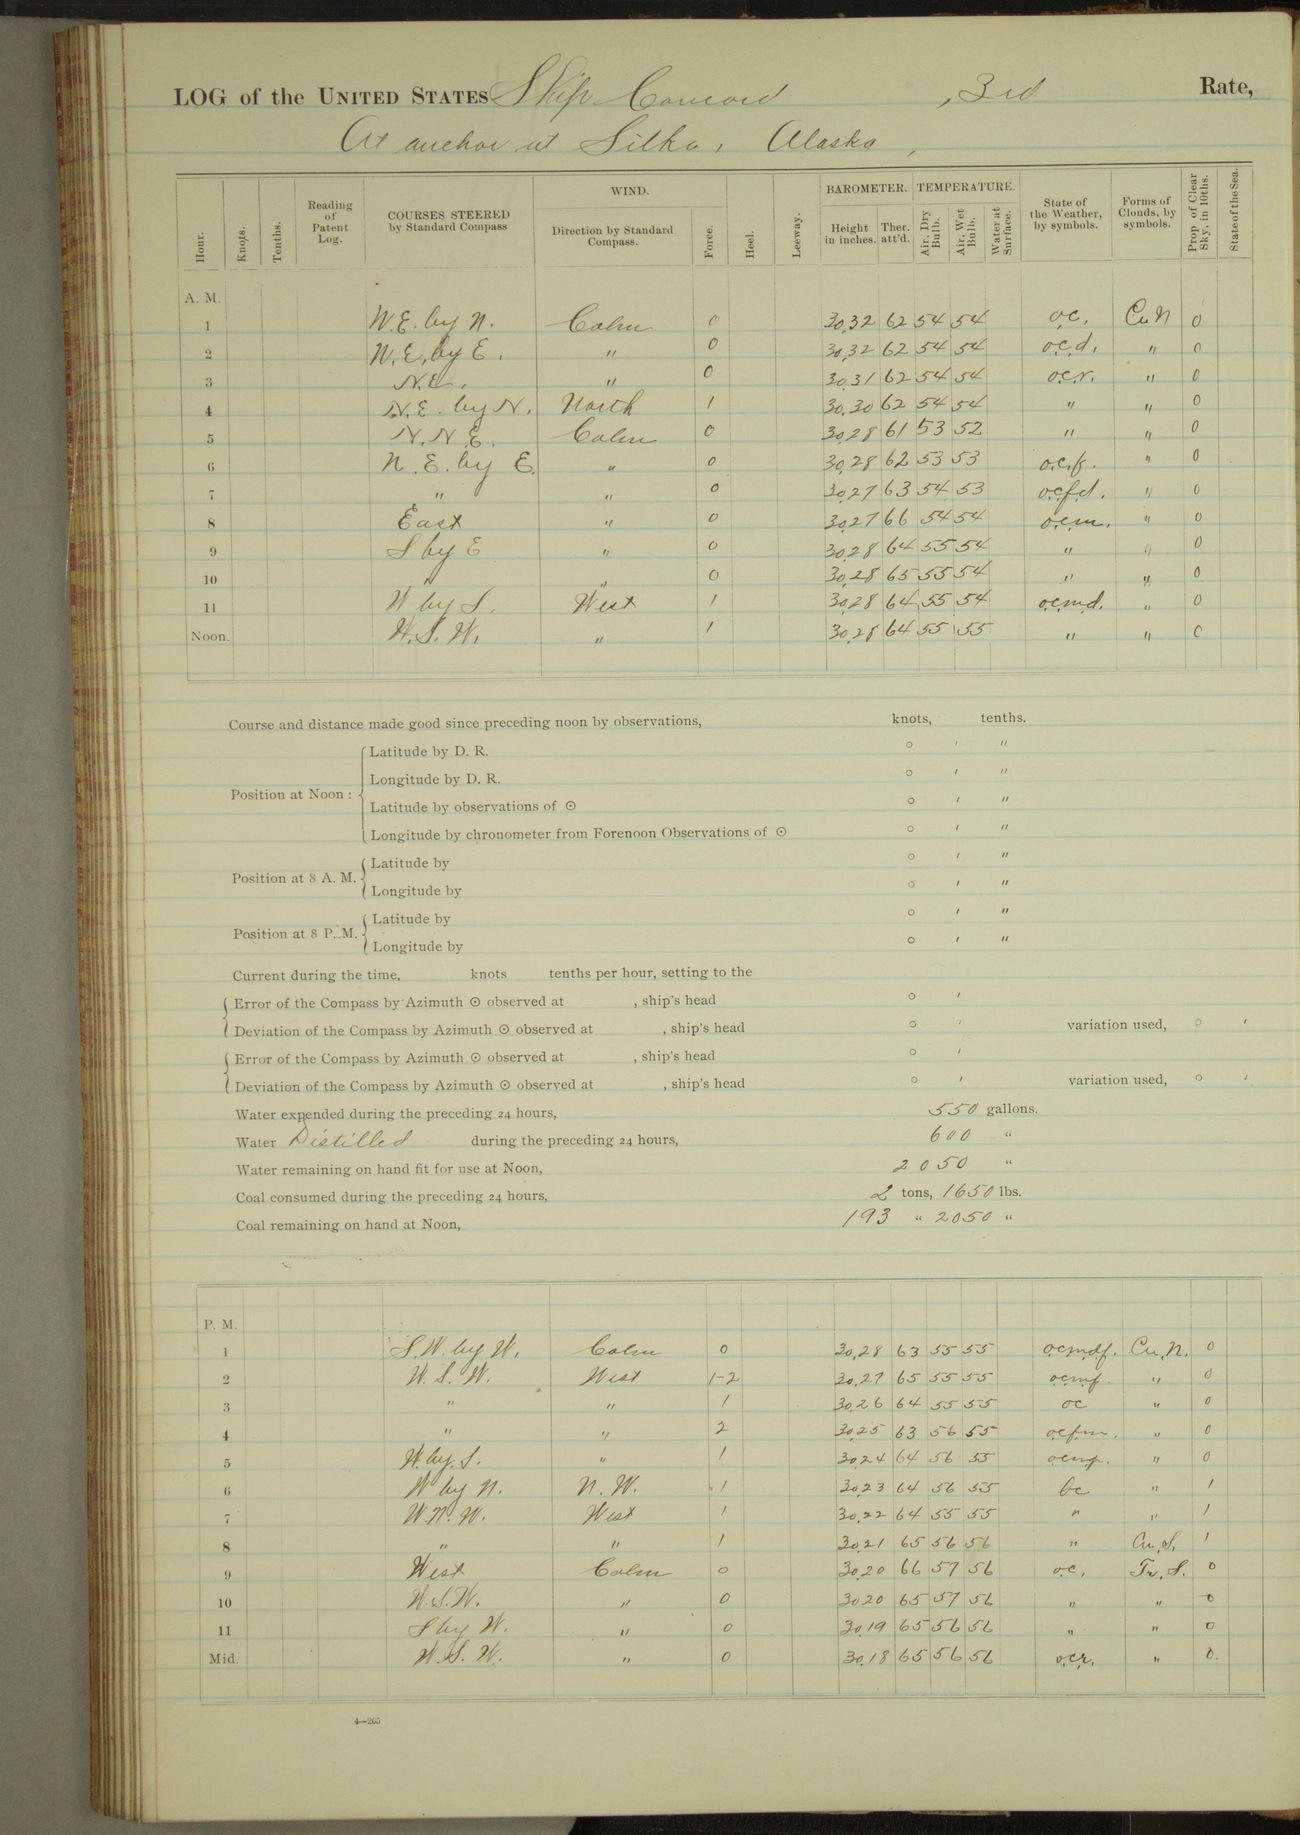 LOG of the UNITED STATES Ship Concord, 3rd Rate,
At anchor at Sitka, Alaska,
Hour. Knots. Tenths. Reading of Patent Log. COURSES STEERED by Standard Compass WIND. Direction by Standard Compass. Force. Heel. Leeway. BAROMETER. Height in inches. Ther. att'd. TEMPERATURE. Air, Dry Bulb. Air, Wet Bulb. Water at Surface. State of the Weather, by symbols. Forms of Clouds, by symbols. Prop. of Clear Sky, in 10ths. State of the Sea.
A. M.
1 N.E. by N. Calm 0 30.32 62 54 54 o.c. Cu N 0
2 N.E. by E. " 0 30.32 62 54 54 o.c.d. " 0
3 N.E. " 0 30.31 62 54 54 o.c.r. " 0
4 N.E. by N. North 1 30.30 62 54 54 " " 0
5 N.N.E. Calm 0 30.28 61 53 52 " " 0
6 N.E. by E. " 0 30.28 62 53 53 o.c.f. " 0
7 " " 0 30.27 63 54 53 o.c.f.d. " 0
8 East " 0 30.27 66 54 54 o.c.m. " 0
9 S by E " 0 30.28 64 55 54 " " 0
10 " " 0 30.28 65 55 54 " " 0
11 W by S. West 1 30.28 64 55 54 o.c.m.d. " 0
Noon. W.S.W. " 1 30.28 64 55 55 " " 0
Course and distance made good since preceding noon by observations, knots, tenths.
Position at Noon : Latitude by D. R. ° ′ ″
Longitude by D. R. ° ′ ″
Latitude by observations of ⊙ ° ′ ″
Longitude by chronometer from Forenoon Observations of ⊙ ° ′ ″
Position at 8 A. M. Latitude by ° ′ ″
Longitude by ° ′ ″
Position at 8 P. M. Latitude by ° ′ ″
Longitude by ° ′ ″
Current during the time, knots tenths per hour, setting to the
Error of the Compass by Azimuth ⊙ observed at , ship's head ° ′
Deviation of the Compass by Azimuth ⊙ observed at , ship's head ° ′ variation used, ° ′
Error of the Compass by Azimuth ⊙ observed at , ship's head ° ′
Deviation of the Compass by Azimuth ⊙ observed at , ship's head ° ′ variation used, ° ′
Water expended during the preceding 24 hours, 550 gallons.
Water Distilled during the preceding 24 hours, 600 "
Water remaining on hand fit for use at Noon, 2050 "
Coal consumed during the preceding 24 hours, 2 tons, 1650 lbs.
Coal remaining on hand at Noon, 193 " 2050 "
P. M.
1 S.W. by W. Calm 0 30.28 63 55 55 o.c.m.d.f. Cu.N. 0
2 W.S.W. West 1-2 30.27 65 55 55 o.c.m.f. " 0
3 " " 1 30.26 64 55 55 oc " 0
4 " " 2 30.25 63 56 55 o.c.f.m. " 0
5 W. by S. " 1 30.24 64 56 55 " 0
6 W by N. N.W. 1 30.23 64 56 55 bc " 1
7 W.N.W. West 1 30.22 64 55 55 " " 1
8 " " 1 30.21 65 56 56 " Cu.S. 1
9 West Calm 0 30.20 66 57 56 o.c. 0
10 W.S.W. " 0 30.20 65 57 56 " " 0
11 S by W. " 0 30.19 65 56 56 " " 0
Mid. W.S.W. " 0 30.18 65 56 56 o.c.r. " 0.
4—265